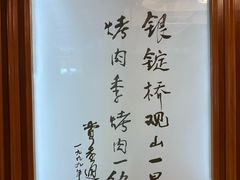 银锭桥观山一景
烤肉季烤肉一绝
一九八九年